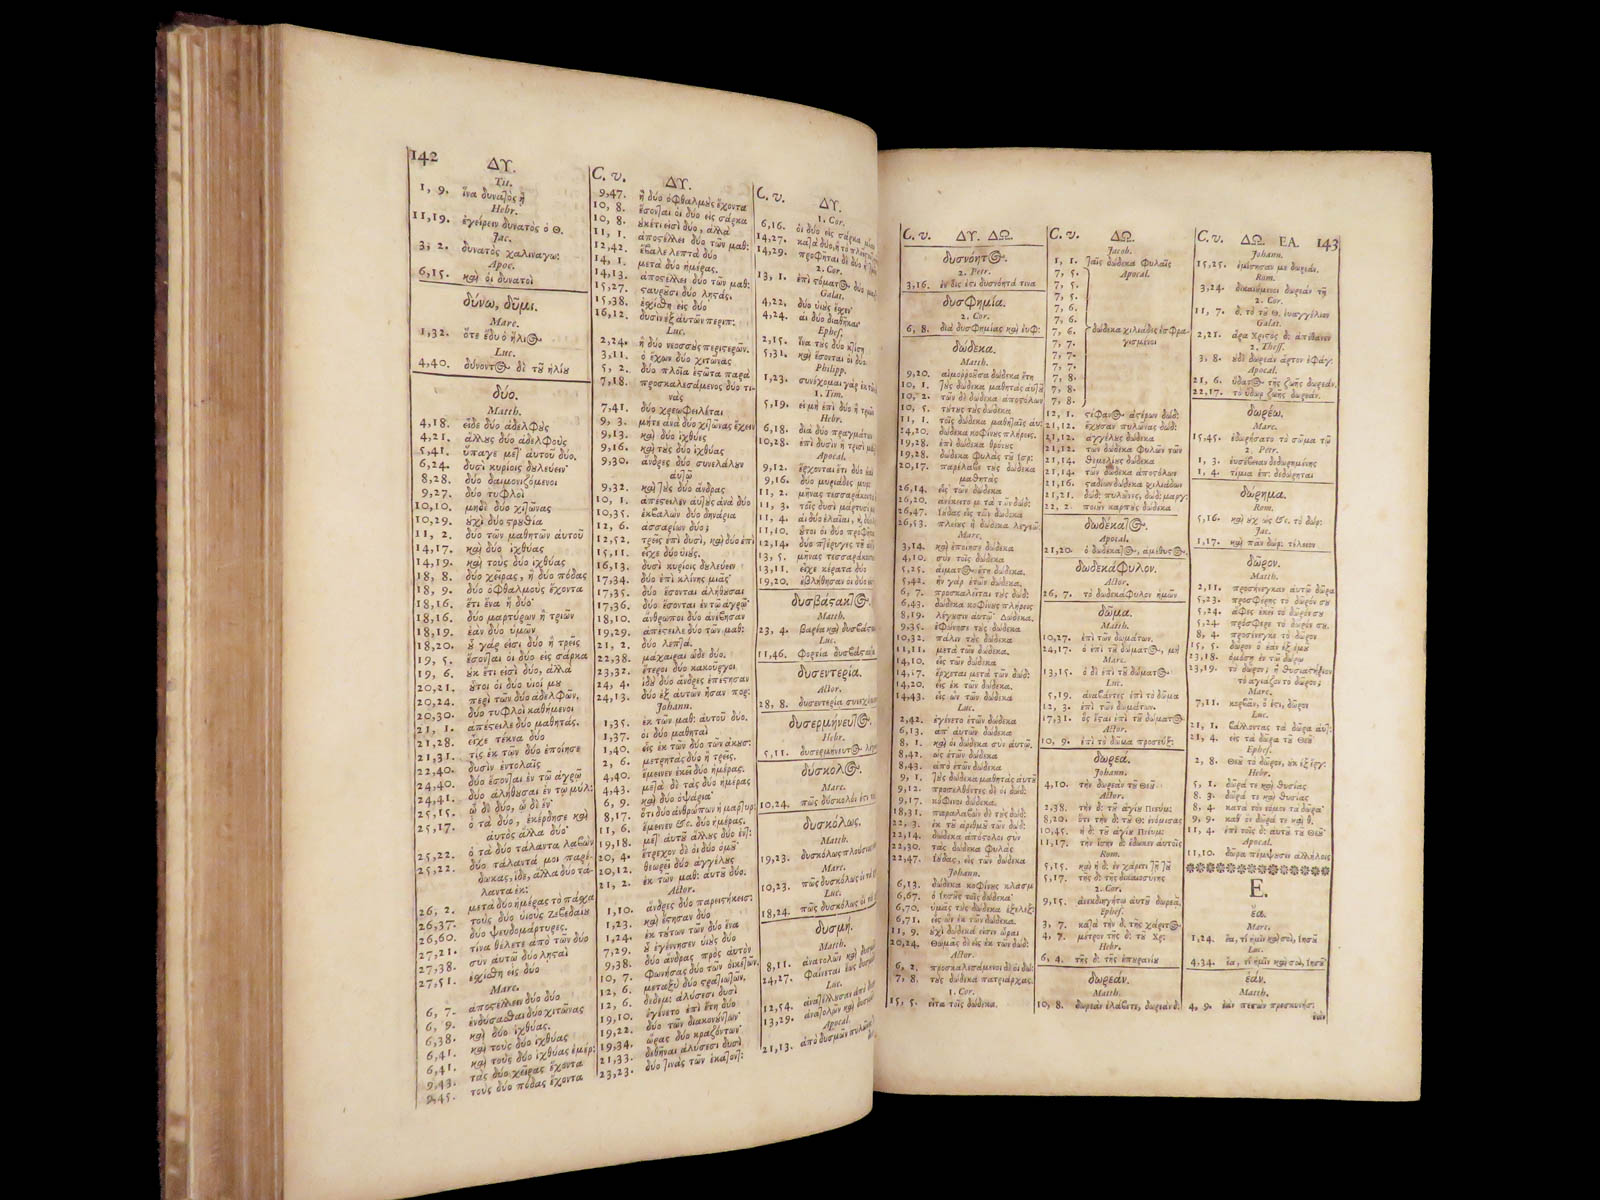 142
ΔΥ.
Tit.
1, 9. ἵνα δυνατὸς ᾖ
Hebr.
11,19. ἐγείρειν δυνατὸς ὁ Θ.
Jac.
3, 2. δυνατὸς χαλιναγω:
Apoc.
6,15. καὶ οἱ δυνατοὶ
δύνω, δῦμι.
Marc.
1,32. ὅτε ἔδυ ὁ ἥλιος.
Luc.
4,40. δύνοντος δὲ τοῦ ἡλίου
δύο.
Matth.
4,18. εἶδε δύο ἀδελφοὺς
4,21. ἄλλους δύο ἀδελφοὺς
5,41. ὕπαγε μετ' αὐτοῦ δύο.
6,24. δυσὶ κυρίοις δουλεύειν
8,28. δύο δαιμονιζόμενοι
9,27. δύο τυφλοὶ
10,10. μηδὲ δύο χιτῶνας
10,29. οὐχὶ δύο στρουθία
11, 2. δύο τῶν μαθητῶν αὐτοῦ
14,17. καὶ δύο ἰχθύας
14,19. καὶ τοὺς δύο ἰχθύας
18, 8. δύο χεῖρας, ἢ δύο πόδας
18, 9. δύο ὀφθαλμοὺς ἔχοντα
18,16. ἔτι ἕνα ἢ δύο
18,16. δύο μαρτύρων ἢ τριῶν
18,19. ἐὰν δύο ὑμῶν
18,20. οὗ γάρ εἰσι δύο ἢ τρεῖς
19, 5. ἔσονται οἱ δύο εἰς σάρκα
19, 6. οὐκ ἔτι εἰσὶ δύο, ἀλλὰ
20,21. οὗτοι οἱ δύο υἱοί μου
20,24. περὶ τῶν δύο ἀδελφῶν,
20,30. δύο τυφλοὶ καθήμενοι
21, 1. ἀπέστειλε δύο μαθητὰς.
21,28. εἶχε τέκνα δύο
21,31. τίς ἐκ τῶν δύο ἐποίησε
22,40. δυσὶν ἐντολαῖς
24,40. δύο ἔσονται ἐν τῷ ἀγρῷ
24,41. δύο ἀλήθουσαι ἐν τῷ μύλ:
25,15. ᾧ δὲ δύο, ᾧ δὲ ἓν
25,17. ὁ τὰ δύο, ἐκέρδησε καὶ
αὐτὸς ἄλλα δύο
25,22. ὁ τὰ δύο τάλαντα λαβὼν
25,22. δύο τάλαντά μοι παρέ-
δωκας, ἴδε, ἄλλα δύο τά-
λαντα ἐκ:
26, 2. μετὰ δύο ἡμέρας τὸ πάσχα
26,37. τοὺς δύο υἱοὺς Ζεβεδαίου
26,60. δύο ψευδομάρτυρες.
27,21. τίνα θέλετε ἀπὸ τῶν δύο
27,38. σὺν αὐτῷ δύο λῃσταὶ
27,51. ἐσχίσθη εἰς δύο
Marc.
6, 7. ἀποστέλλειν δύο δύο
6, 9. ἐνδύσασθαι δύο χιτῶνας
6,38. καὶ δύο ἰχθύας.
6,41. καὶ τοὺς δύο ἰχθύας
6,41. καὶ τοὺς δύο ἰχθύας ἐμέρ:
9,43. τὰς δύο χεῖρας ἔχοντα
9,45. τοὺς δύο πόδας ἔχοντα
C. v.
ΔΥ.
9,47. ἢ δύο ὀφθαλμοὺς ἔχοντα
10, 8. ἔσονται οἱ δύο εἰς σάρκα
10, 8. οὐκέτι εἰσὶ δύο, ἀλλὰ
11, 1. ἀποστέλλει δύο τῶν μαθ:
12,42. ἔβαλε λεπτὰ δύο
14, 1. μετὰ δύο ἡμέρας.
14,13. ἀποστέλλει δύο τῶν μαθ:
15,27. σταυροῦσι δύο λῃστάς.
15,38. ἐσχίσθη εἰς δύο
16,12. δυσὶν ἐξ αὐτῶν περιπ:
Luc.
2,24. ἢ δύο νεοσσοὺς περιστερῶν.
3,11. ὁ ἔχων δύο χιτῶνας
5, 2. δύο πλοῖα ἑστῶτα παρὰ
7,18. προσκαλεσάμενος δύο τι-
νὰς
7,41. δύο χρεωφειλέται
9, 3. μήτε ἀνὰ δύο χιτῶνας ἔχειν
9,13. καὶ δύο ἰχθύες
9,16. καὶ τοὺς δύο ἰχθύας
9,30. ἄνδρες δύο συνελάλουν
αὐτῷ
9,32. καὶ τοὺς δύο ἄνδρας
10, 1. ἀπέστειλεν αὐτοὺς ἀνὰ δύο
10,35. ἐκβαλὼν δύο δηνάρια
12, 6. ἀσσαρίων δύο;
12,52. τρεῖς ἐπὶ δυσὶ, καὶ δύο ἐπὶ
15,11. εἶχε δύο υἱούς.
16,13. δυσὶ κυρίοις δουλεύειν
17,34. δύο ἐπὶ κλίνης μιᾶς
17,35. δύο ἔσονται ἀλήθουσαι
17,36. δύο ἔσονται ἐν τῷ ἀγρῷ
18,10. ἄνθρωποι δύο ἀνέβησαν
19,29. ἀπέστειλε δύο τῶν μαθ:
21, 2. δύο λεπτά.
22,38. μάχαιραι ὧδε δύο.
23,32. ἕτεροι δύο κακοῦργοι
24, 4. ἰδοὺ δύο ἄνδρες ἐπέστησαν
24,13. δύο ἐξ αὐτῶν ἦσαν πορ:
Johann.
1,35. ἐκ τῶν μαθ: αὐτοῦ δύο.
1,37. οἱ δύο μαθηταὶ
1,40. εἷς ἐκ τῶν δύο τῶν ἀκουσ:
2, 6. μετρητὰς δύο ἢ τρεῖς.
4,40. ἔμεινεν ἐκεῖ δύο ἡμέρας.
4,43. μετὰ δὲ τὰς δύο ἡμέρας
6, 9. καὶ δύο ὀψάρια
8,17. ὅτι δύο ἀνθρώπων ἡ μαρτυρ:
11, 6. ἔμεινεν &c. δύο ἡμέρας.
19,18. μετ' αὐτοῦ ἄλλους δύο ἐντ:
20, 4. ἔτρεχον δὲ οἱ δύο ὁμοῦ
20,12. θεωρεῖ δύο ἀγγέλους
21, 2. ἐκ τῶν μαθ: αὐτοῦ δύο.
Actor.
1,10. ἄνδρες δύο παρειστήκεισ:
1,23. καὶ ἔστησαν δύο
1,24. ἐκ τούτων τῶν δύο ἕνα
7,29. οὗ ἐγέννησεν υἱοὺς δύο
9,38. δύο ἄνδρας πρὸς αὐτὸν
10, 7. φωνήσας δύο τῶν οἰκετῶν.
12, 6. μεταξὺ δύο στρατιωτῶν.
12, 6. δεδεμ: ἁλύσεσι δυσὶ
19,10. ἐγένετο ἐπὶ ἔτη δύο
19,22. δύο τῶν διακονούντων
19,34. ὥρας δύο κραζόντων
21,33. δεθῆναι ἁλύσεσι δυσὶ
23,23. δύο τινὰς τῶν ἑκατοντ:
C. v.
ΔΥ.
1. Cor.
6,16. οἱ δύο εἰς σάρκα μίαν
14,27. κατὰ δύο, ἢ τὸ πλεῖστον
14,29. προφῆται δὲ δύο ἢ
2. Cor.
13, 1. ἐπὶ στόματος δύο
Galat.
4,22. δύο υἱοὺς ἔχεν
4,24. αἱ δύο διαθῆκαι
Ephes.
2,15. ἵνα τοὺς δύο κτίσῃ
5,31. καὶ ἔσονται οἱ δύο
Philipp.
1,23. συνέχομαι γὰρ ἐκ τῶν
1. Tim.
5,19. εἰ μὴ ἐπὶ δύο ἢ τριῶν
Hebr.
6,18. διὰ δύο πραγμάτων
10,28. ἐπὶ δυσὶν ἢ τρισὶ
Apocal.
9,12. ἔρχονται ἔτι δύο οὐαὶ
9,16. δύο μυριάδες μυρ:
11, 2. μῆνας τεσσαράκοντα
11, 3. τοῖς δυσὶ μάρτυσί
11, 4. αἱ δύο ἐλαῖαι, κ, δύο
11,10. οὗτοι οἱ δύο προφῆται
12,14. δύο πτέρυγες τοῦ
13, 5. μῆνας τεσσαράκοντα
13,11. εἶχε κέρατα δύο
19,20. ἐβλήθησαν οἱ δύο
δυσβάστακτος.
Matth.
23, 4. βαρέα καὶ δυσβάστ
Luc.
11,46. φορτία δυσβάστακτα
δυσεντερία.
Actor.
28, 8. δυσεντερίᾳ συνεχόμενον
δυσερμήνευτος.
Hebr.
5,11. δυσερμήνευτος
δύσκολος.
Marc.
10,24. πῶς δύσκολόν ἐστι
δυσκόλως.
Matth.
19,23. δυσκόλως πλούσιος
Marc.
10,23. πῶς δυσκόλως οἱ τὰ
Luc.
18,24. πῶς δυσκόλως οἱ τὰ
δυσμή.
Matth.
8,11. ἀνατολῶν καὶ δυσμῶν
24,27. φαίνεται ἕως δυσμῶν
Luc.
12,54. ἀνατέλλουσαν ἀπὸ δυσμῶν
13,29. ἀνατολῶν καὶ δυσμῶν
Apocal.
21,13. ἀπὸ δυσμῶν πυλῶνες
C. v.
ΔΥ. ΔΩ.
δυσνόητος.
2. Petr.
3,16. ἐν οἷς ἐστι δυσνόητά τινα
δυσφημία.
2. Cor.
6, 8. διὰ δυσφημίας καὶ εὐφ:
δώδεκα.
Matth.
9,20. αἱμοῤῥοοῦσα δώδεκα ἔτη
10, 1. τοὺς δώδεκα μαθητὰς αὐτοῦ
10, 2. τῶν δὲ δώδεκα ἀποστόλων
10, 5. τούτους τοὺς δώδεκα
11, 1. τοῖς δώδεκα μαθηταῖς αὐ:
14,20. δώδεκα κοφίνους πλήρεις.
19,28. ἐπὶ δώδεκα θρόνους
19,28. δώδεκα φυλὰς τοῦ Ισρ:
20,17. παρέλαβε τοὺς δώδεκα
μαθητὰς
26,14. εἷς τῶν δώδεκα
26,20. ἀνέκειτο μετὰ τῶν δώδ:
26,47. Ιούδας εἷς τῶν δώδεκα
26,53. πλείους ἢ δώδεκα λεγεῶ:
Marc.
3,14. καὶ ἐποίησε δώδεκα
4,10. σὺν τοῖς δώδεκα
5,25. αἵματος ἔτη δώδεκα.
5,42. ἦν γὰρ ἐτῶν δώδεκα.
6, 7. προσκαλεῖται τοὺς δώδ:
6,43. δώδεκα κοφίνους πλήρεις
8,19. λέγουσιν αὐτῷ Δώδεκα.
9,35. ἐφώνησε τοὺς δώδεκα
10,32. πάλιν τοὺς δώδεκα
11,11. μετὰ τῶν δώδεκα.
14,10. εἷς τῶν δώδεκα
14,17. ἔρχεται μετὰ τῶν δώδ:
14,20. εἷς ἐκ τῶν δώδεκα.
14,43. εἷς ὢν τῶν δώδεκα
Luc.
2,42. ἐγένετο ἐτῶν δώδεκα
6,13. ἀπ' αὐτῶν δώδεκα
8, 1. καὶ οἱ δώδεκα σὺν αὐτῷ.
8,42. ὡς ἐτῶν δώδεκα
8,43. ἀπὸ ἐτῶν δώδεκα
9, 1. τοὺς δώδεκα μαθητὰς αὐτοῦ
9,12. προσελθόντες δὲ οἱ δώδ:
9,17. κόφινοι δώδεκα.
18,31. παραλαβὼν δὲ τοὺς δώδ:
22, 3. ἐκ τοῦ ἀριθμοῦ τῶν δώδ:
22,14. δώδεκα ἀπόστολοι σὺν
22,30. τὰς δώδεκα φυλὰς
22,47. Ιούδας, εἷς τῶν δώδεκα
Johann.
6,13. δώδεκα κοφίνους κλασμ
6,67. ὁ Ιησοῦς τοῖς δώδεκα
6,70. ὑμᾶς τοὺς δώδεκα ἐξελεξ
6,71. εἷς ὢν ἐκ τῶν δώδεκα.
11, 9. οὐχὶ δώδεκά εἰσιν ὧραι
20,24. Θωμᾶς δὲ εἷς ἐκ τῶν δώδ:
Actor.
6, 2. προσκαλεσάμενοι δὲ οἱ δώδ:
7, 8. τοὺς δώδεκα πατριάρχας.
1. Cor.
15, 5. εἶτα τοῖς δώδεκα.
C. v.
ΔΩ.
Jacob.
1, 1. ταῖς δώδεκα φυλαῖς
Apocal.
7, 5.
7, 5.
7, 5.
7, 6.
7, 6.
7, 6. δώδεκα χιλιάδες ἐσφρα-
7, 7. γισμένοι
7, 7.
7, 7.
7, 8.
7, 8.
7, 8.
12, 1. στέφανος ἀστέρων δώδ:
21,12. ἔχουσαν πυλῶνας δώδ:
21,12. ἀγγέλους δώδεκα
21,12. τῶν δώδεκα φυλῶν τῶν
21,14. θεμελίους δώδεκα
21,14. τῶν δώδεκα ἀποστόλων
21,16. σταδίων δώδεκα χιλιάδων
21,21. δώδ: πυλῶνες, δώδ: μαργ:
22, 2. ποιοῦν καρποὺς δώδεκα
δωδέκατος.
Apocal.
21,20. ὁ δωδέκατος, ἀμέθυστος.
δωδεκάφυλον.
Actor.
26, 7. τὸ δωδεκάφυλον ἡμῶν
δῶμα.
Matth.
10,27. ἐπὶ τῶν δωμάτων.
24,17. ὁ ἐπὶ τοῦ δώματος, μὴ
Marc.
13,15. ὁ δὲ ἐπὶ τοῦ δώματος
Luc.
5,19. ἀναβάντες ἐπὶ τὸ δῶμα
12, 3. ἐπὶ τῶν δωμάτων.
17,31. ὃς ἔσται ἐπὶ τοῦ δώματος
Actor.
10, 9. ἐπὶ τὸ δῶμα προσεύξ:
δωρεά.
Johann.
4,10. τὴν δωρεὰν τοῦ Θεοῦ
Actor.
2,38. τὴν δ: τοῦ ἁγίου Πνεύμ:
8,20. ὅτι τὴν δ: τοῦ Θ: ἐνόμισας
10,45. ἡ δ: τοῦ ἁγίου Πνεύμ:
11,17. τὴν ἴσην δ: ἔδωκεν αὐτοῖς
Rom.
5,15. καὶ ἡ δ: ἐν χάριτι τῇ τοῦ
5,17. τῆς δ: τῆς δικαιοσύνης
2. Cor.
9,15. ἀνεκδιηγήτῳ αὐτοῦ δωρεᾷ.
Ephes.
3, 7. κατὰ τὴν δ. τῆς χάριτος
4, 7. μέτρον τῆς δ: τοῦ Χρ:
Hebr.
6, 4. τῆς δ: τῆς ἐπουρανίου
δωρεάν.
Matth.
10, 8. δωρεὰν ἐλάβετε, δωρεὰν δ:
C. v.
ΔΩ. ΕΑ. 143
Johann.
15,25. ἐμίσησάν με δωρεάν.
Rom.
3,24. δικαιούμενοι δωρεὰν τῇ
2. Cor.
11, 7. δ. τὸ τοῦ Θ. εὐαγγέλιον
Galat.
2,21. ἄρα Χριστὸς δ: ἀπέθανεν
2. Thess.
3, 8. οὐδὲ δωρεὰν ἄρτον ἐφάγ:
Apocal.
21, 6. ὕδατος τῆς ζωῆς δωρεάν.
22,17. τὸ ὕδωρ ζωῆς δωρεάν.
δωρέω.
Marc.
15,45. ἐδωρήσατο τὸ σῶμα τῷ
2. Petr.
1, 3. εὐσέβειαν δεδωρημένης
1, 4. τίμια ἐπ: δεδώρηται
δώρημα.
Rom.
5,16. καὶ οὐχ ὡς &c. τὸ δώρ:
Jac.
1,17. καὶ πᾶν δώρ: τέλειον
δῶρον.
Matth.
2,11. προσήνεγκαν αὐτῷ δῶρα
5,23. προσφέρῃς τὸ δῶρόν σου
5,24. ἄφες ἐκεῖ τὸ δῶρόν σου
5,24 πρόσφερε τὸ δῶρόν σου.
8, 4. προσένεγκε τὸ δῶρον
15, 5. δῶρον ὃ ἐὰν ἐξ ἐμοῦ
23,18. ὀμόσῃ ἐν τῷ δώρῳ
23,19. τὸ δῶρον; ἢ θυσιαστήριον
τὸ ἁγιάζον τὸ δῶρον;
Marc.
7,11. κορβᾶν, ὅ ἐστι, δῶρον
Luc.
21, 1. βάλλοντας τὰ δῶρα αὐτ:
21, 4. εἰς τὰ δῶρα τοῦ Θεοῦ
Ephes.
2, 8. Θεοῦ τὸ δῶρον, οὐκ ἐξ ἔργ:
Hebr.
5, 1. δῶρά τε καὶ θυσίας
8. 3. δῶρά τε καὶ θυσίας
8, 4. κατὰ τὸν νόμον τὰ δῶρα
9, 9. καθ' ὃν δῶρά τε καὶ θ.
11, 4. ἐπὶ τοῖς δ: αὐτοῦ τοῦ Θεοῦ
Apocal.
11,10. δῶρα πέμψουσιν ἀλλήλοις
E.
ἔα.
Marc.
1,24. ἔα, τί ἡμῖν καὶ σοὶ, Ιησοῦ
Luc.
4,34. ἔα, τί ἡμῖν καὶ σοὶ, Ιησοῦ
ἐάν.
Matth.
4, 9. ἐὰν πεσὼν προσκυνήσ: